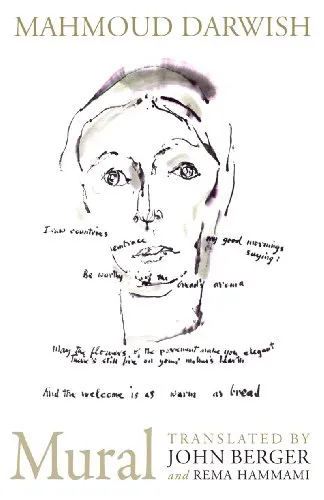 MAHMOUD DARWISH
I saw countries embrace my good mornings
saying:
Be worthy of the bread's aroma
May the flowers of the pavement make you elegant
there's still fire on your mother's hearth
And the welcome is as warm as bread
Mural
TRANSLATED BY
JOHN BERGER
and REMA HAMMAMI